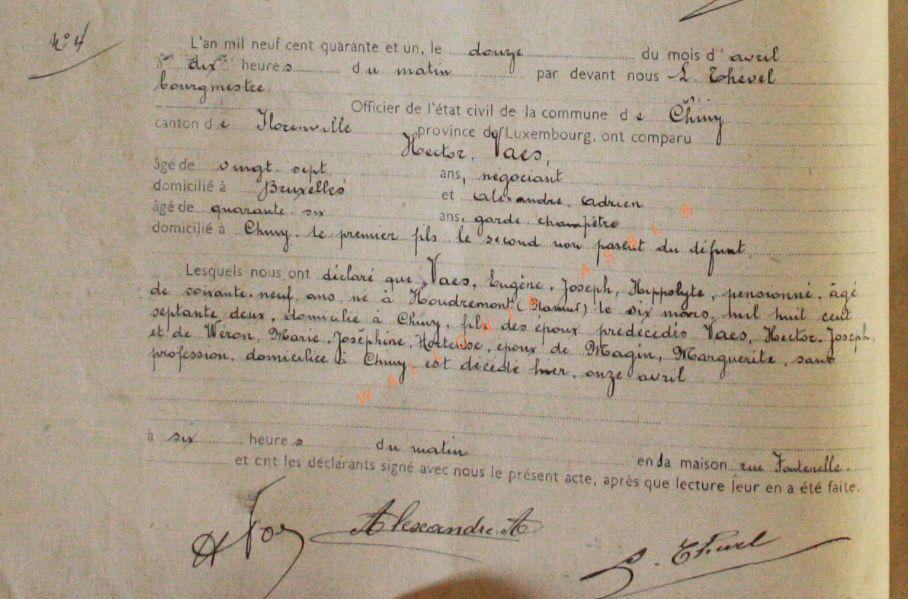 N° 4
L'an mil neuf cent quarante et un, le douze du mois d'avril
à dix heures du matin par devant nous L. Thével
bourgmestre.
Officier de l'état civil de la commune de Chiny
canton de Florenville province de Luxembourg, ont comparu
Hector. Vaes,
âgé de vingt. sept ans, négociant
domicilié à Bruxelles et Alexandre. Adrien
âgé de quarante. six ans, garde champêtre
domicilié à Chiny. le premier fils le second non parent du défunt.
Lesquels nous ont déclaré que Vaes, Eugène, Joseph, Hippolyte, pensionné, âgé
de soixante. neuf ans né à Houdremont (Namur) le six mars, mil huit cent
septante deux, domicilié à Chiny, fils des époux prédécédés Vaes, Hector. Joseph,
et de Wéron, Marie. Joséphine, Hortense, époux de Magin, Marguerite, sans
profession, domiciliée à Chiny est décédé hier, onze avril
à six heures du matin en la maison rue Fontenelle.
et ont les déclarants signé avec nous le présent acte, après que lecture leur en a été faite.
Alexandre. A
WALLONIA ASBL ©